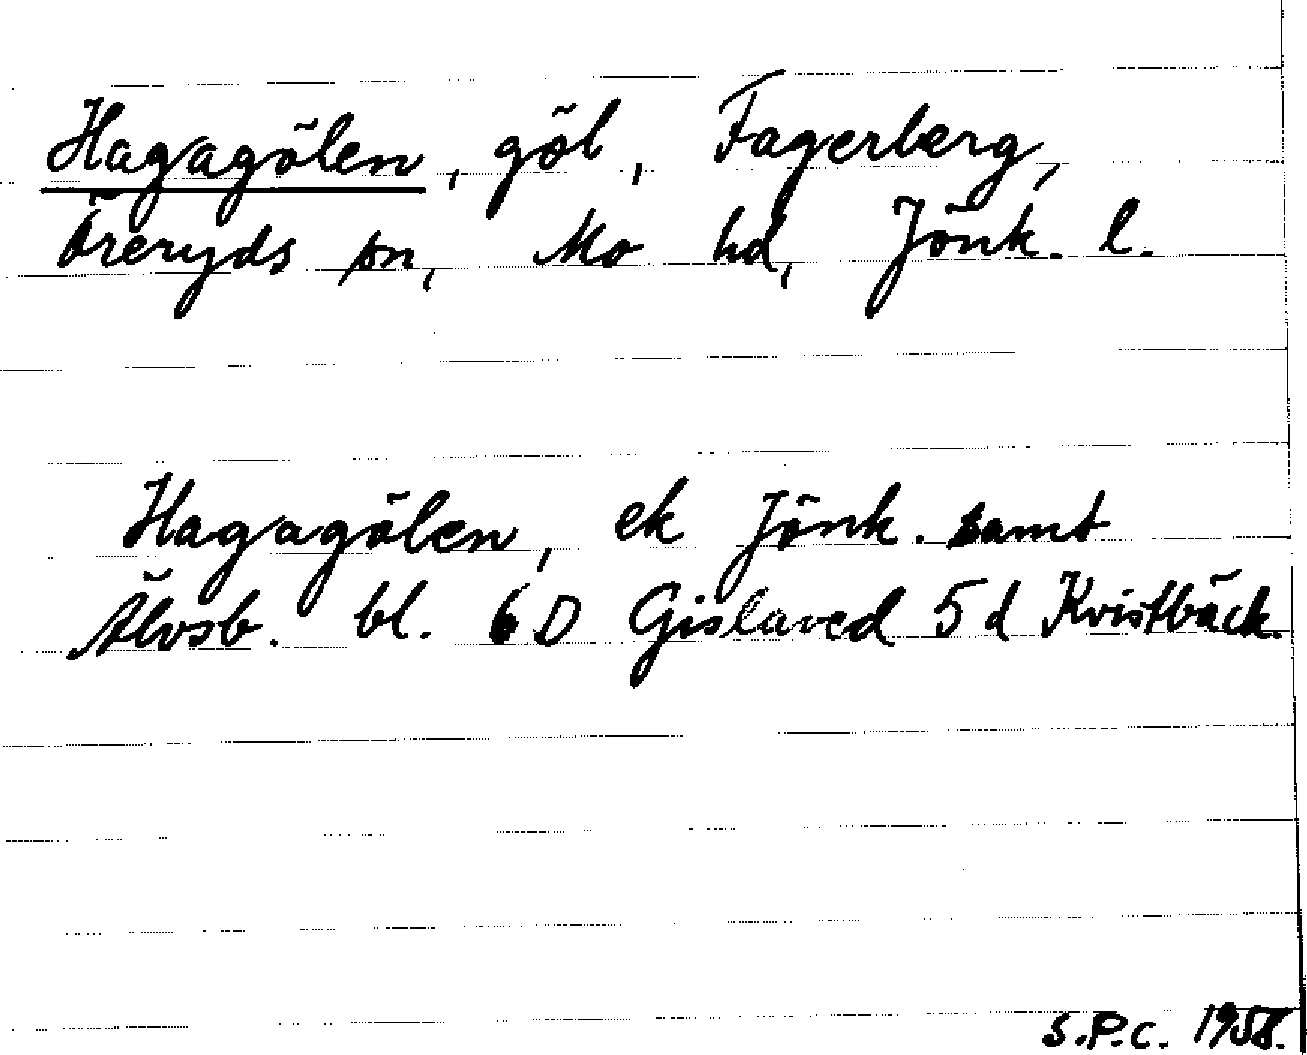 Hagagölen, göl, Fagerberg,
Öreryds sn, Mo hd, Jönk. l.
Hagagölen, ek Jönk. samt
Älvsb. bl. 6 D Gislaved 5 d Kvistbäck.
S.P.C. 1958.